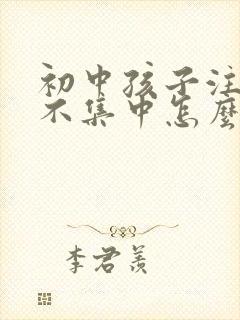 初中孩子注
不集中怎麽
李君羡